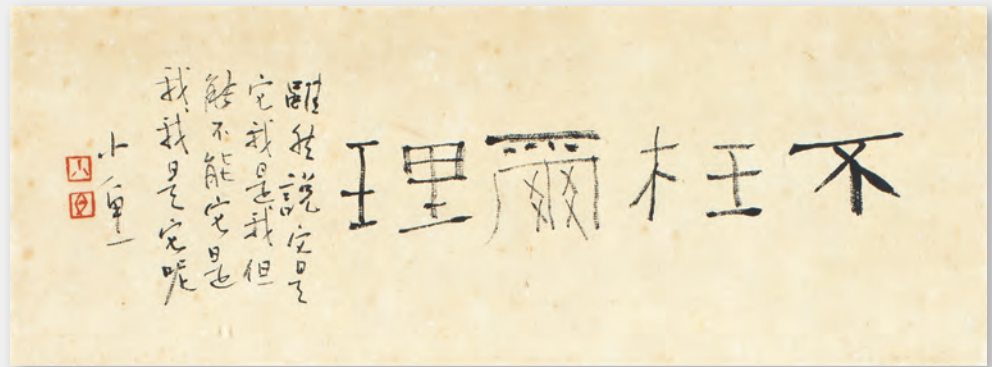 不枉爾理
雖然說它是
它我是我但
能不能它是
我、我是它呢
小魚